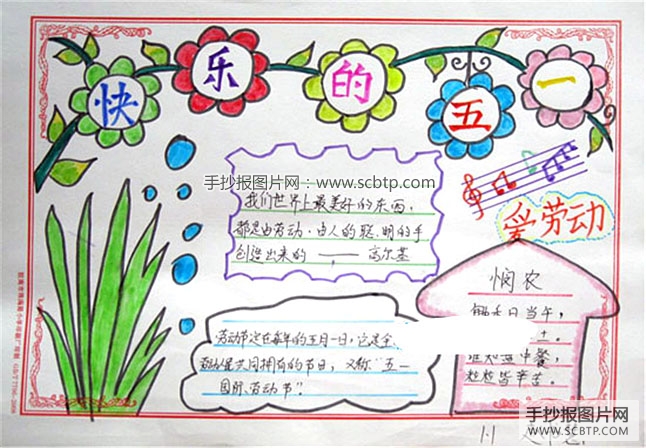 快乐的五一
手抄报图片网：www.scbtp.com
我们世界上最美好的东西，
都是由劳动、由人的聪明的手
创造出来的 ——高尔基
爱劳动
悯农
锄禾日当午，
土。
谁知盘中餐，
粒粒皆辛苦。
劳动节定在每年的五月一日，它是全
劳动是共同拥有的节日，又称“五一
国际劳动节”
手抄报图片网
WWW.SCBTP.COM